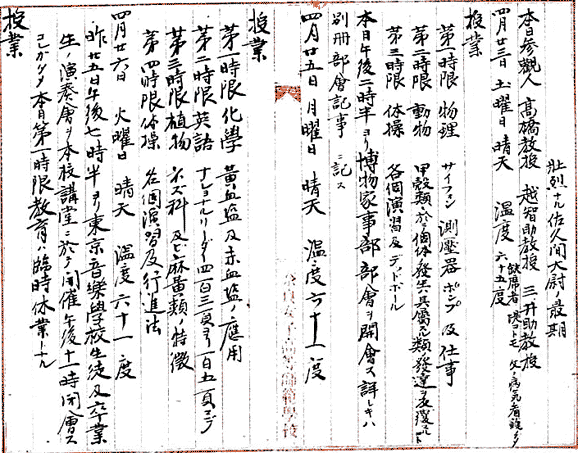 壯烈ナル佐久間大尉ノ最期
本日参觀人 高橋教授 越智助教授 三井助教授
四月廿三日 土曜日 晴天 溫度 六十五度
缺席者
授業
第一時限 物理 サイフォン 測壓器 ポンプ及仕事
第二時限 動物 甲殼類ニ於ケル個体發生ト具
第三時限 体操 各個演習及デッドボール
本日午後二時半ヨリ博物家事部部會ヲ開會ス詳シキハ
別冊部會記事ニ記ス
四月廿五日 月曜日 晴天 溫度六十一度
授業
第一時限 化學 黃血盐及赤血盐ノ應用
第二時限 英語 ナショナルリーダー四百三頁ヨリ百五頁マデ
第三時限 植物 科及ビ麻黃類ノ特徵
第四時限 体操 各個演習及行進法
四月廿六日 火曜日 晴天 溫度六十一度
昨廿五日午後七時半ヨリ東京音樂學校生徒及卒業
生ノ演奏會ヲ本校講堂ニ於テ開催午後十一時閉會ス
コレガタメ本日第一時限教育ハ臨時休業トナル
授業
奈良女子高等師範學校